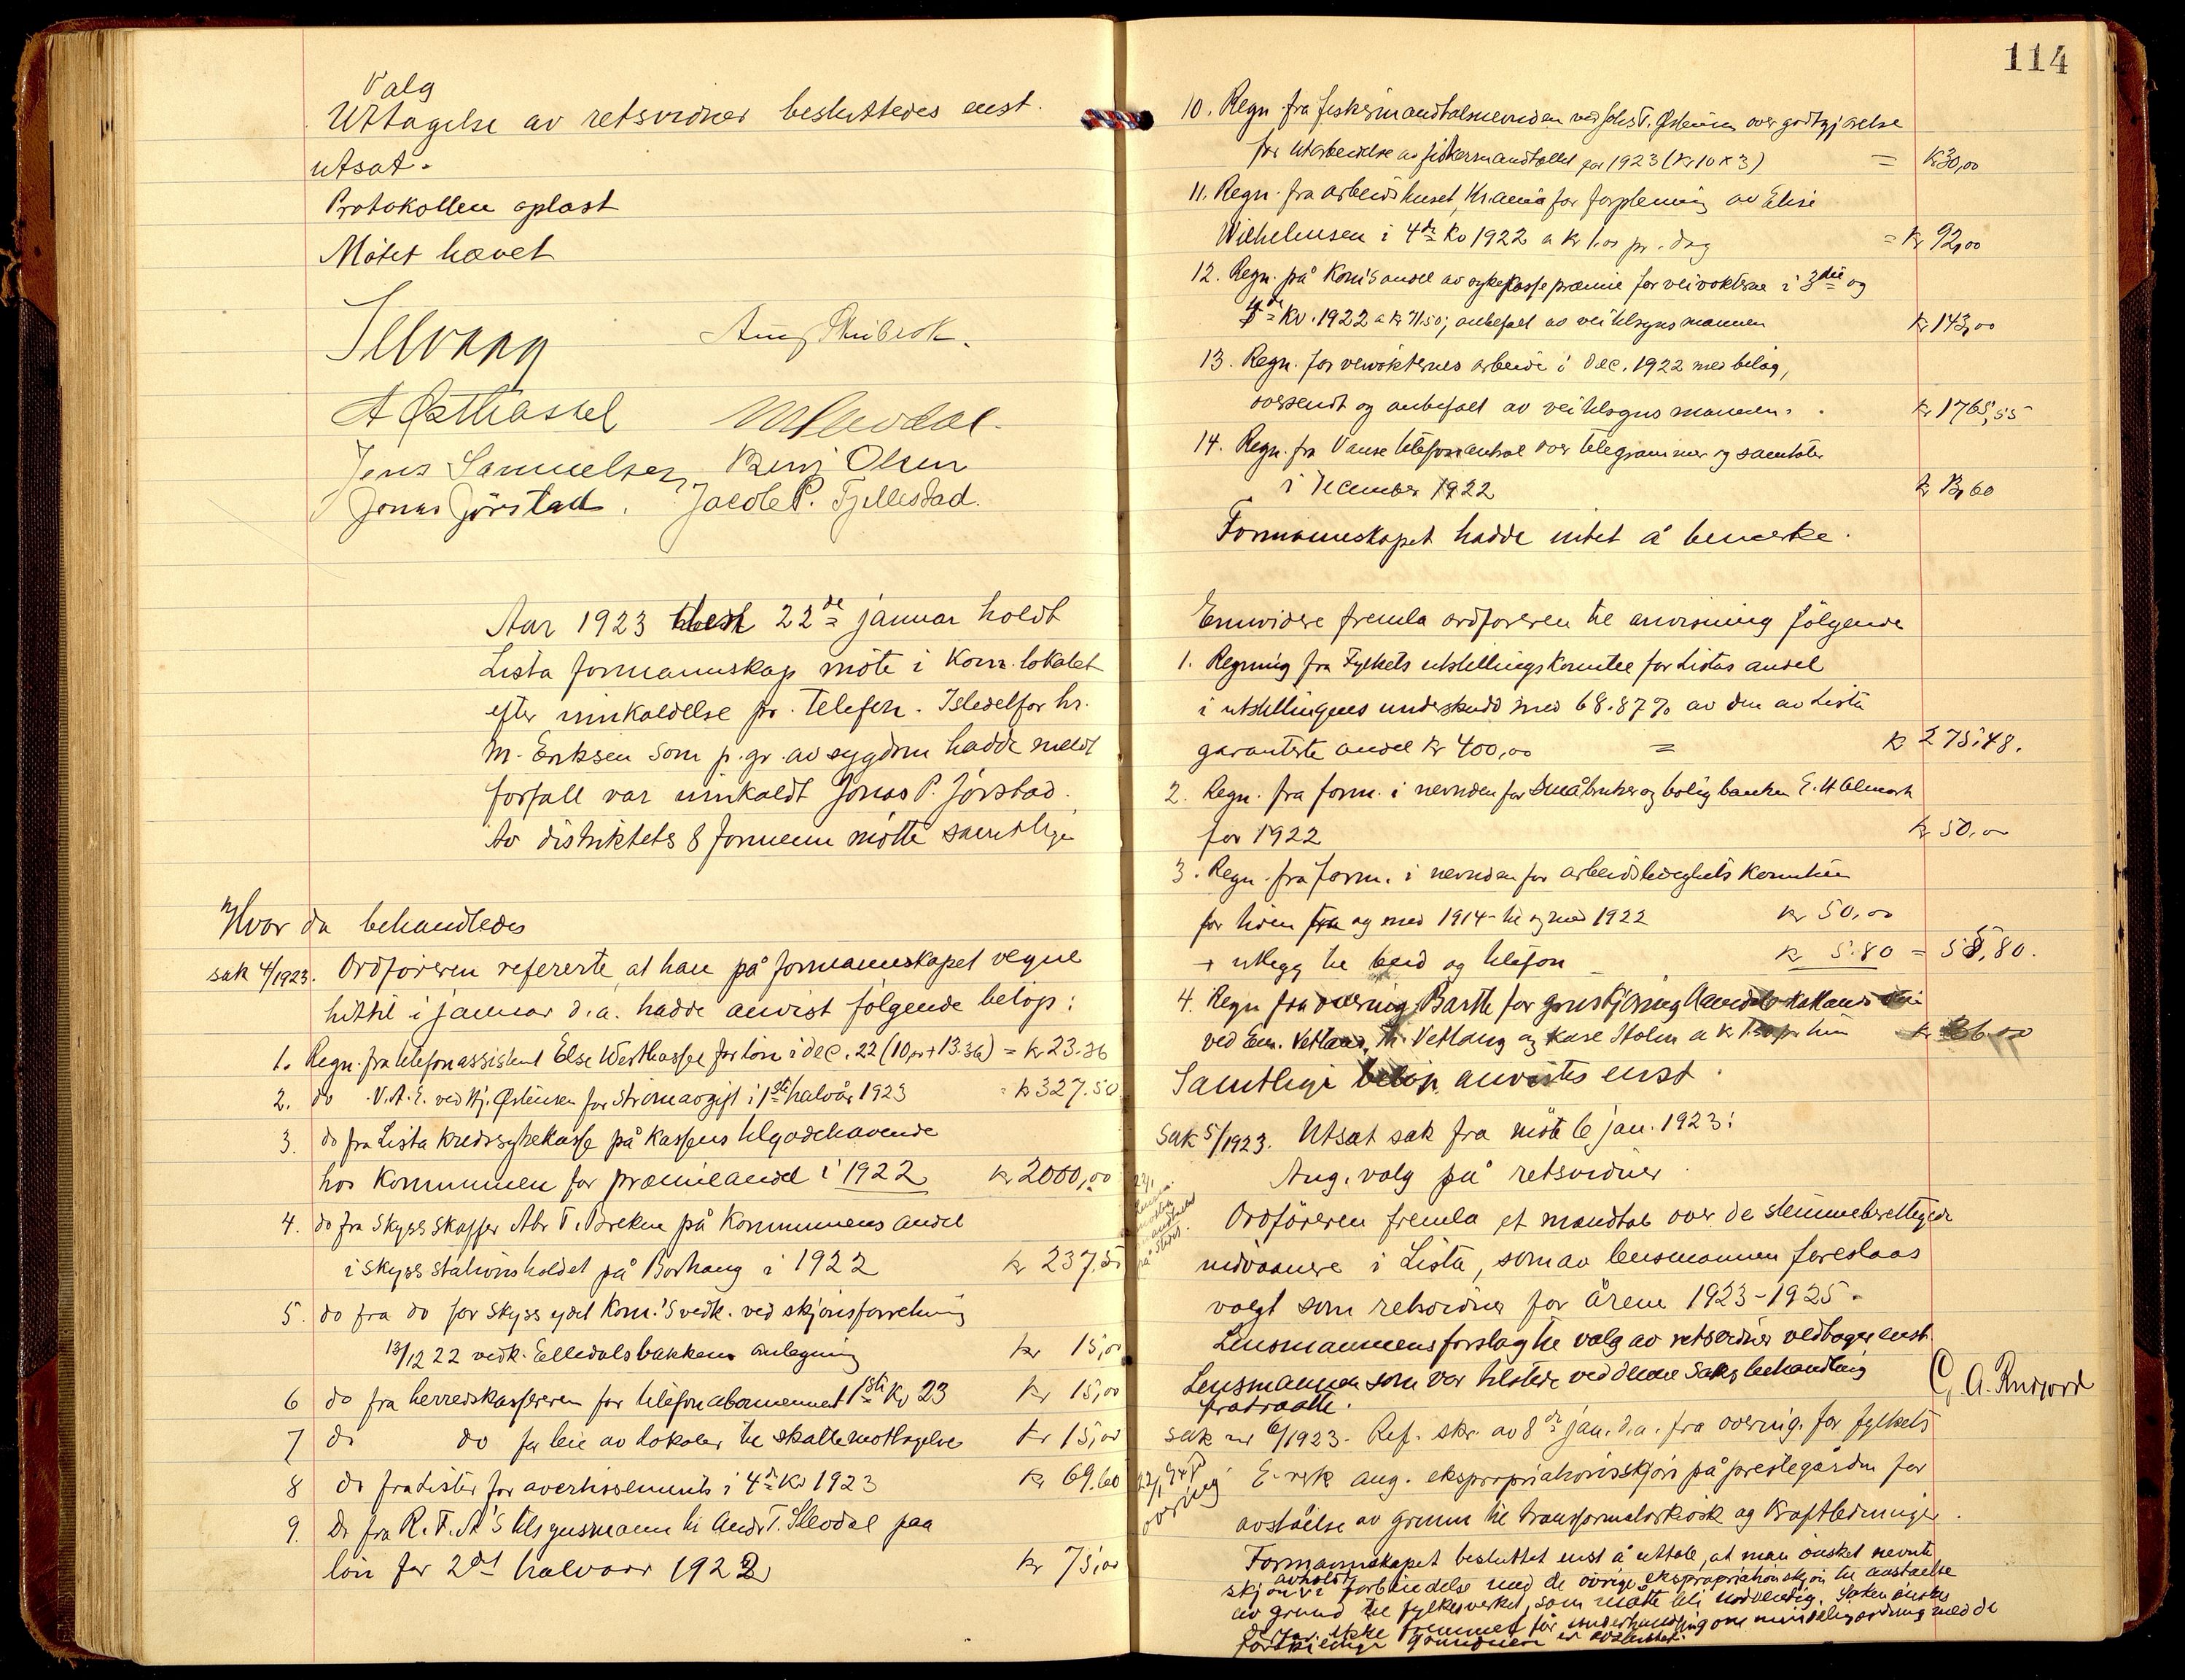 Valg
Uttagelse av retsvidner besluttedes enst.
utsat.
Protokollen oplæst
Mötet hævet
A Østhassel
Jens Samuelsen, Benj Olsen
Jonas Jörstad. Jacob P. Tjellestad.
Aar 1923 22de januar holdt
Lista formannskap möte i Kom. lokalet
efter innkaldelse pr. telefon. Istedetfor hr.
M. Eriksen som p. gr. av sygdom hadde meldt
forfall var innkaldt Jonas P. Jörstad.
Av distriktets 8 formenn mötte samtlige
Hvor da behandledes
sak 4/1923. Ordföreren refererte, at han på formannskapet vegne
hittil i januar d.a. hadde anvist fölgende belöp:
1. Regn. fra telefonassistent Else Westhassel for lön i dec. 22 (10,00 + 13.36) = kr 23.36
2. do V.A.E. ved Hj. Østensen for strömavgift i 1ste halvår 1923 = kr 327.50
3. do fra Lista kredssykekasse på kassens tilgodehavende
hos Kommunen for præmieandel i 1922 kr 2000,00
4. do fra Skyssskaffer Abr T. Breken på Kommunens andel
i skyssstationsholdet på Borhaug i 1922 kr 237,50
5. do fra do for skyss ydet Kom.'s vedk. ved skjönsforretning
13/12 22 vedk. Elledalsbakkens omlegning kr 15,00
6 do fra herredskassereren for telefonabonnement 1ste Kv 23 kr 15,00
7 do do for leie av lokaler til skattemottagelse kr 15,00
8 do fra Lister for avertissements i 4de Kv 1923 kr 69.60
9. Do fra R.T.A's tilsynsmann hr Andr. T. Slevdal paa
lön for 2det halvaar 1922 kr 75,00
114
10. Regn. fra fiskermandtalsnevnden ved Johs T. Østensen over godtgjörelse
for utarbeidelse av fiskermandtallet for 1923 (kr 10 x 3) = kr 30,00
11. Regn. fra arbeidshuset, Kr.ania for forpleining av Elise
Wilhelmsen i 4de Kv 1922 a kr 1.00 pr. dag = kr 92,00
12. Regn. på Kom's andel av sykekasse præmie for veivokterne i 3die og
4de Kv. 1922 a kr 71.50; anbefalt av veitilsynsmannen kr 143,00
13. Regn. for veivokternes arbeide i dec. 1922 med bilag,
oversendt og anbefalt av veitilsynsmannen. kr 1765,55
14. Regn. fra Vanse telefoncentral over telegrammer og samtaler
i December 1922 kr 13,60
Formannskapet hadde intet å bemerke.
Ennvidere fremla ordföreren til anvisning fölgende
1. Regning fra Fylkets utstillingskomitee for Listas andel
i utstillingens underskudd med 68.87% av den av Lista
garanterte andel kr 400,00 = kr 275.48.
2. Regn. fra form. i nevnden for Småbruker og bolig banken E. H Olmark
for 1922 kr 50.00
3. Regn. fra form. i nevnden for arbeidsledighets komiteen
for tiden fra og med 1914 til og med 1922 kr 50,00
+ utlegg til bud og telefon kr 5.80 = 55,80.
4. Regn fra overing. Barth for gruskjöring
ved Em. Vetland, Th. Vetland og Kare Stolen a kr
Samtlige belöp anvistes enst.
Sak 5/1923. Utsat sak fra möte 6 jan. 1923:
Ang. valg på retsvidner
Ordföreren fremla et mandtal over de stemmeberettigede
indvaanere i Lista, som av lensmannen foreslaas
valgt som retsvidner for årene 1923-1925.
Lensmannens forslag til valg av retsvidner vedtoges enst.
Lensmannen som var tilstede ved denne Saks behandling
fratraadte. G. A. Rudjord
Sak nr 6/1923. Ref. skr. av 8de jan. d.a. fra overing. for fylkets
E-verk ang. ekspropriationsskjön på prestegården for
avståelse av grunn til transformatorkiosk og kraftledninger.
Formannskapet besluttet enst å uttale, at man önsket nevnte
skjön avholdt i forbindelse med de övrige ekspropriationsskjön til avståelse
av grund til fylkesverket, som måtte bli nödvendig. Saken önskes
derfor ikke fremmet för underhandling om mindelig ordning med de
forskjellige grunneiere er avsluttet.